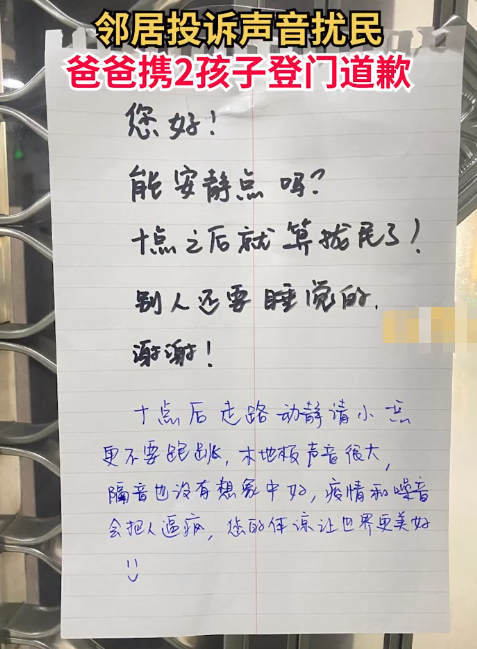 邻居投诉声音扰民
爸爸携2孩子登门道歉
您好！
能安静点吗？
十点之后就算扰民了！
别人还要睡觉的.
谢谢！
十点后走路动静请小点
更不要跑跳，木地板声音很大，
隔音也没有想象中好，疫情和噪音
会把人逼疯，您的体谅让世界更美好